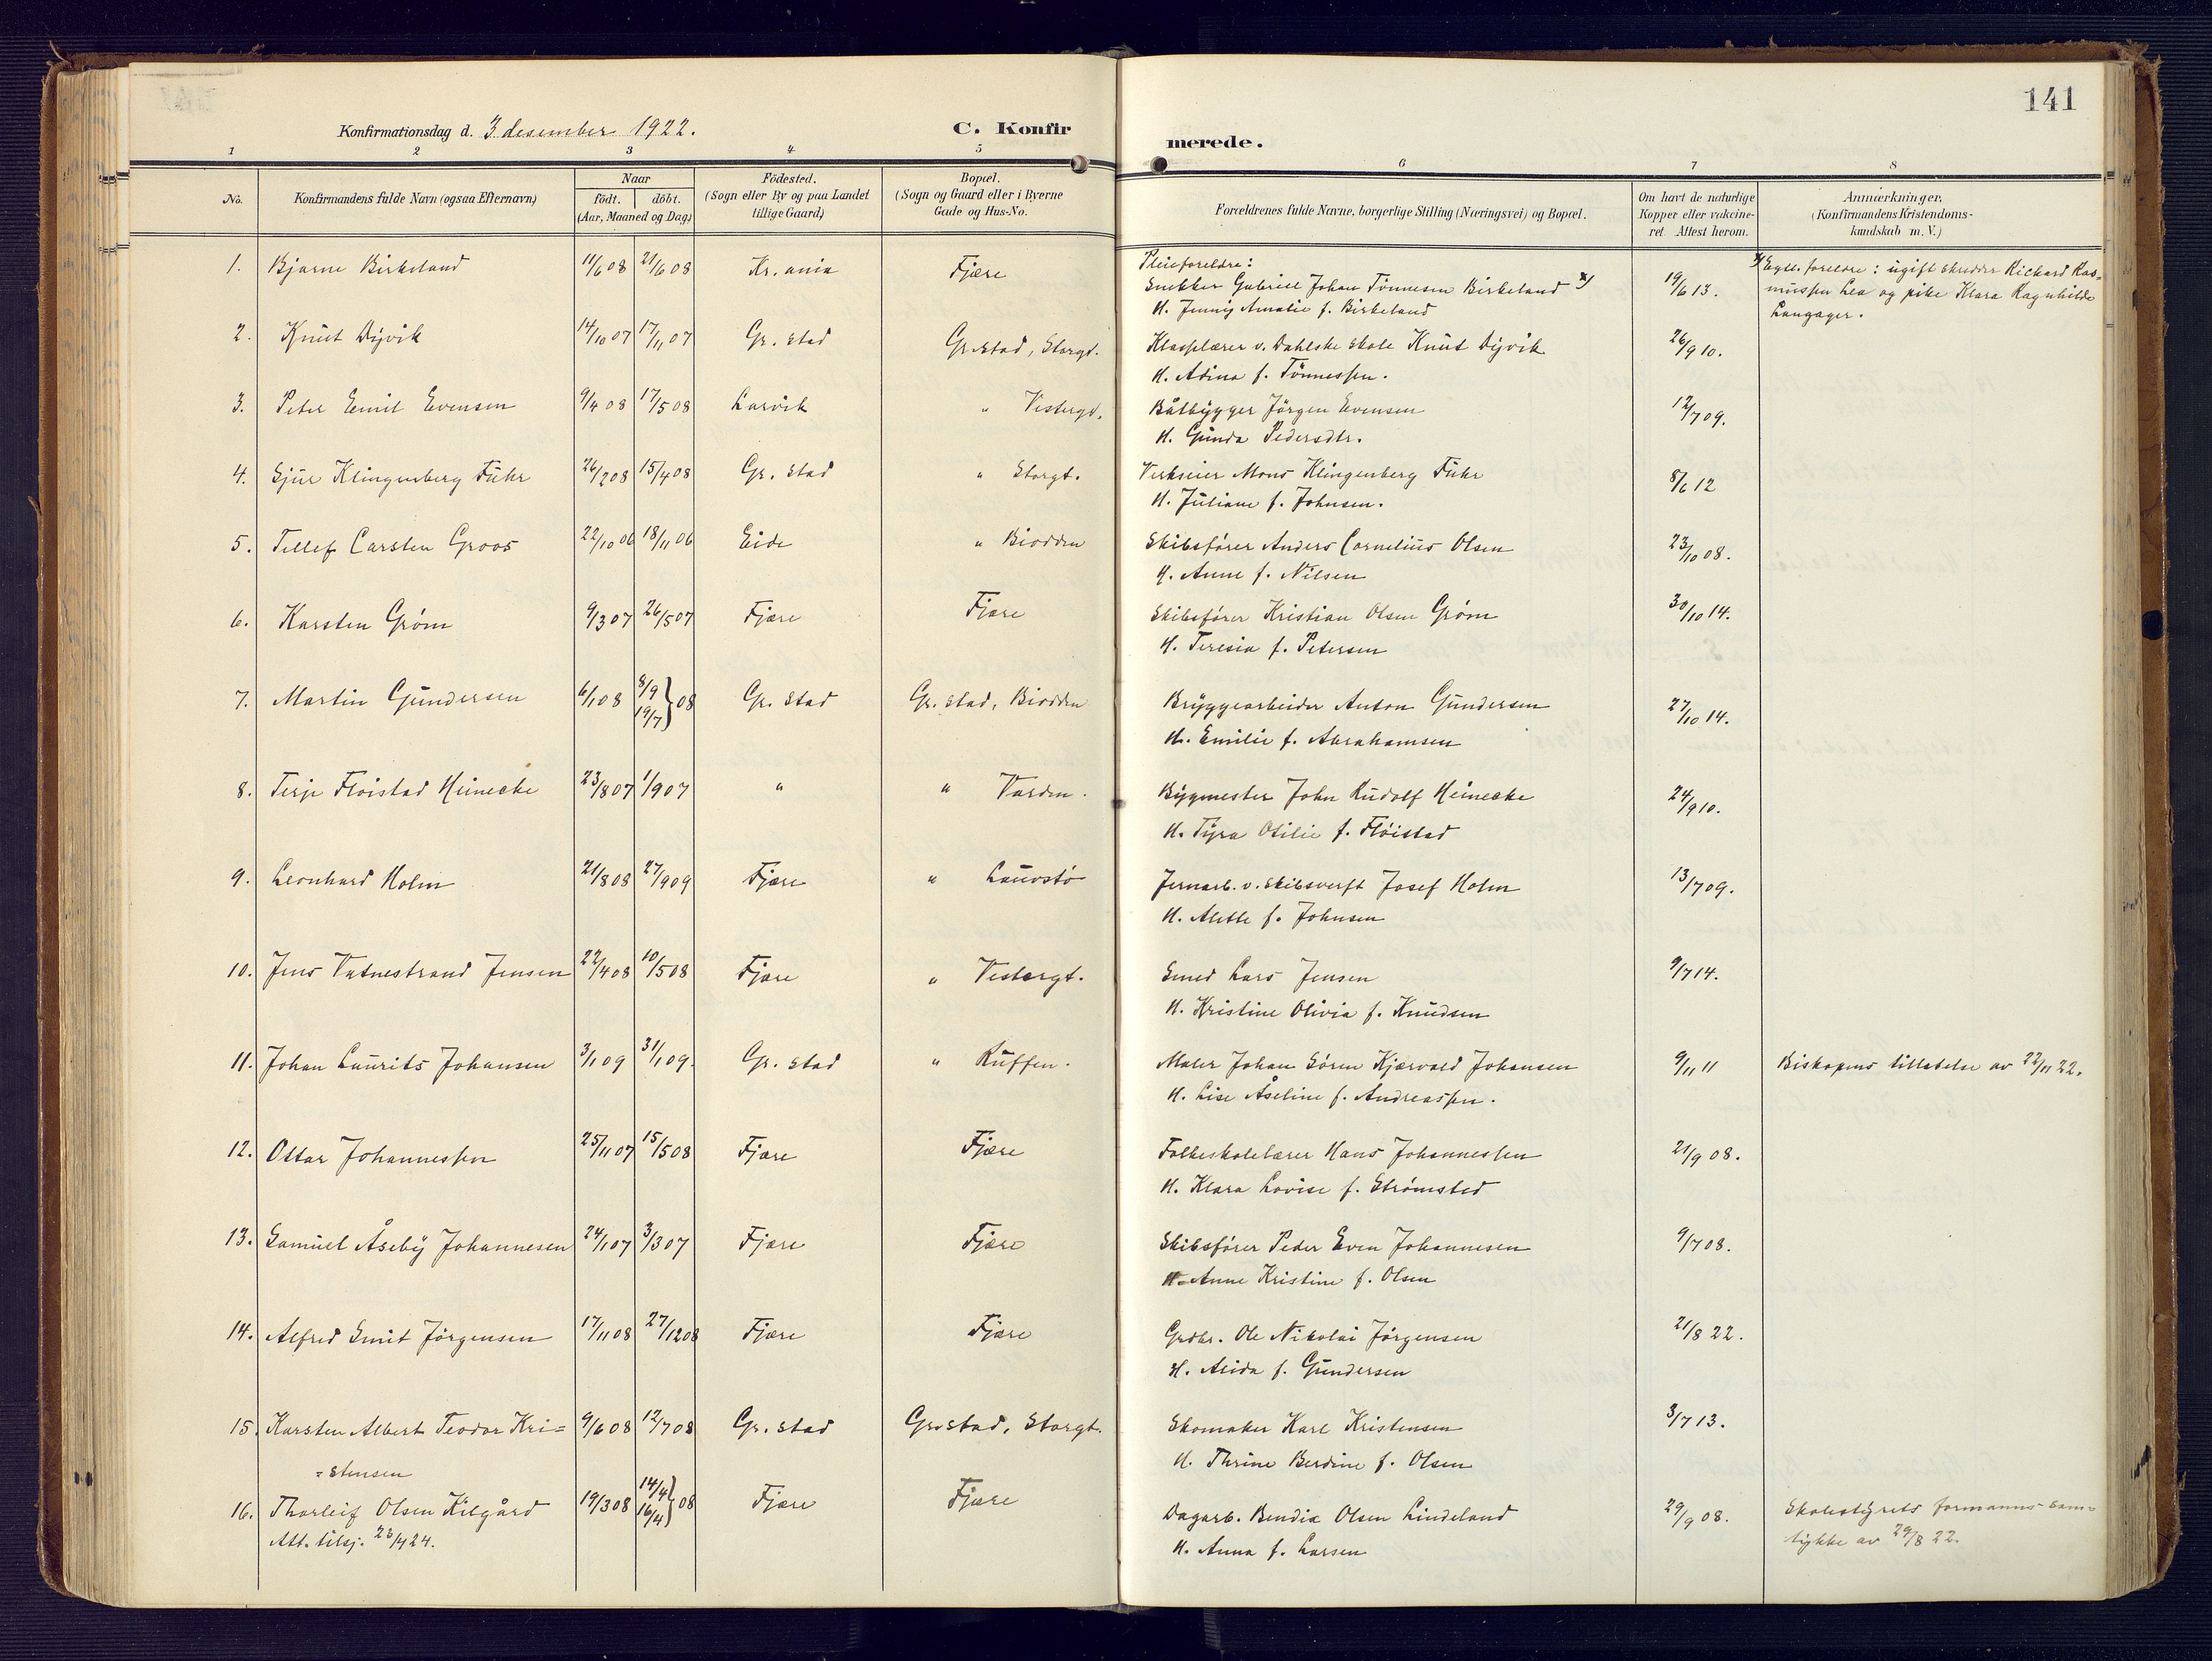 141
Konfirmationsdag d. 3 desember 1922.
C. Konfir
merede.
1 2 3 4 5 6 7 8
No.
Konfirmandens fulde Navn (ogsaa Efternavn)
Naar
födt. döbt.
(Aar, Maaned og Dag)
Födested.
(Sogn eller By og paa Landet
tillige Gaard)
Bopæl.
(Sogn og Gaard eller i Byerne
Gade og Hus-No.
Forældrenes fulde Navne, borgerlige Stilling (Næringsvei) og Bopæl.
Om havt de naturlige
Kopper eller vakcine-
ret. Attest herom.
Anmærkninger,
(Konfirmandens Kristendoms-
kundskab m. V.)
1. Bjarne Birkeland 11/6 08 21/6 08 Kr.ania Fjære
Pleieforeldre:
Snekker Gabriel Johan Tönnesen Birkeland x) 19/6 13.
H. Jenny Amalie f. Birkeland
x) Egtl. foreldre: ugift skredder Richard Ras-
mussen Lea og pike Klara Ragnhilde
Langager.
2. Knut Dyvik 14/10 07 17/11 07 Gr.stad Gr.stad, Storgt.
Klasselærer v. Dahlske skole Knut Dyvik 26/9 10.
H. Adina f. Tönnessen.
3. Peter Emil Evensen 9/4 08 17/5 08 Larvik " Vestergt.
Båtbygger Jörgen Evensen 12/7 09.
H. Gunda Pedersdtr.
4. Sjur Klingenberg Fuhr 26/2 08 15/4 08 Gr.stad " Storgt.
Verkseier Mons Klingenberg Fuhr 8/6 12
H. Juliane f. Johnsen.
5. Tellef Carsten Groos 22/10 06 18/11 06 Eide " Biodden
Skibsfører Anders Cornelius Olsen 23/10 08.
H. Anne f. Nilsen
6. Karsten Grøm 9/3 07 26/5 07 Fjære Fjære
Skibsfører Kristian Olsen Grøm 30/10 14.
H. Teresia f. Petersen
7. Martin Gundersen 6/1 08 8/9 19/7 } 08 Gr.stad Gr.stad, Biodden
Bryggearbeider Anton Gundersen 27/10 14.
H. Emilie f. Abrahamsen
8. Terje Flöistad Heinecke 23/8 07 1/9 07 " " Varden.
Bygmester John Rudolf Heinecke 24/9 10.
H. Tyra Otilie f. Flöistad
9. Leonhard Holm 21/8 08 27/9 09 Fjære " Lauvstö
Jernarb. v. skibsverft Josef Holm 13/7 09.
H. Alette f. Johnsen
10. Jens Vatnestrand Jensen 22/4 08 10/5 08 Fjære " Vestergt.
Smed Lars Jensen 9/7 14.
H. Kristine Olivia f. Knudsen
11. Johan Laurits Johansen 3/1 09 31/1 09. Gr.stad " Kuffen.
Maler Johan Sören Kjærvold Johansen 9/11 11 Biskopens tillatelse av 22/11 22.
H. Lise Åseline f. Andreassen.
12. Ottar Johannessen 25/11 07 15/5 08 Fjære Fjære
Folkeskolelærer Hans Johannessen 21/9 08.
H. Klara Lovise f. Strømsted
13. Samuel Åseby Johannesen 24/1 07 3/3 07 Fjære Fjære
Skibsfører Peder Even Johannesen 9/7 08.
H. Anne Kristine f. Olsen
14. Alfred Emil Jörgensen 17/11 08 27/12 08 Fjære Fjære
Grdbr. Ole Nikolai Jörgensen 21/8 22.
H. Alida f. Gundersen
15. Karsten Albert Teodor Kri= 9/6 08 12/7 08 Gr.stad Gr.stad, Storgt.
=stensen
Skomaker Karl Kristensen 3/7 13.
H. Thrine Berdine f. Olsen
16. Thorleif Olsen Kilgård 19/3 08 14/4 16/4 } 08 Fjære Fjære
Att. tilsj. 23/4 24.
Dagarb. Bendix Olsen Lindeland 29/9 08. Skolestyrets formanns sam=
H. Anna f. Larsen
tykke av 29/8 22.